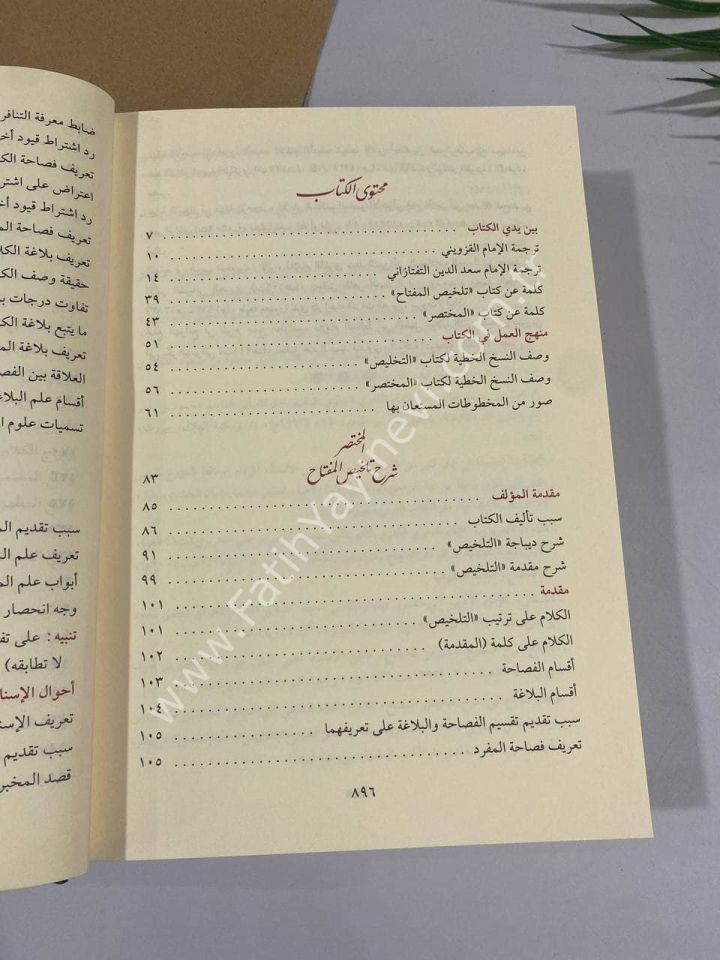 محتوى الكتاب
بين يدي الكتاب . . . . . ٧
ترجمة الإمام القزويني . . . . . ١٠
ترجمة الإمام سعد الدين التفتازاني . . . . . ١٤
كلمة عن كتاب «تلخيص المفتاح» . . . . . ٣٩
كلمة عن كتاب «المختصر» . . . . . ٤٣
منهج العمل في الكتاب . . . . . ٥١
وصف النسخ الخطية لكتاب «التخليص» . . . . . ٥٤
وصف النسخ الخطية لكتاب «المختصر» . . . . . ٥٦
صور من المخطوطات المستعان بها . . . . . ٦١
المختصر
شرح تلخيص المفتاح ٨٣
مقدمة المؤلف . . . . . ٨٥
سبب تأليف الكتاب . . . . . ٨٦
شرح ديباجة «التلخيص» . . . . . ٩١
شرح مقدمة «التلخيص» . . . . . ٩٩
مقدمة . . . . . ١٠١
الكلام على ترتيب «التلخيص» . . . . . ١٠١
الكلام على كلمة (المقدمة) . . . . . ١٠٢
أقسام الفصاحة . . . . . ١٠٣
أقسام البلاغة . . . . . ١٠٤
سبب تقديم تقسيم الفصاحة والبلاغة على تعريفهما . . . . . ١٠٥
تعريف فصاحة المفرد . . . . . ١٠٥
٨٩٦
ضابط معرفة التنافر
رد اشتراط قيود
تعريف فصاحة
اعتراض على
رد اشتراط قيود
تعريف فصاحة
تعريف بلاغة
حقيقة وصف
تفاوت درجات
ما يتبع بلاغة
تعريف بلاغة
العلاقة بين
أقسام علم
تسميات علوم
سبب تقديم
تعريف علم
أبواب علم
وجه انحصار
تنبيه : على
لا تطابقه)
أحوال
تعريف
سبب تقديم
قصد
www.FatihYayinevi.com.tr